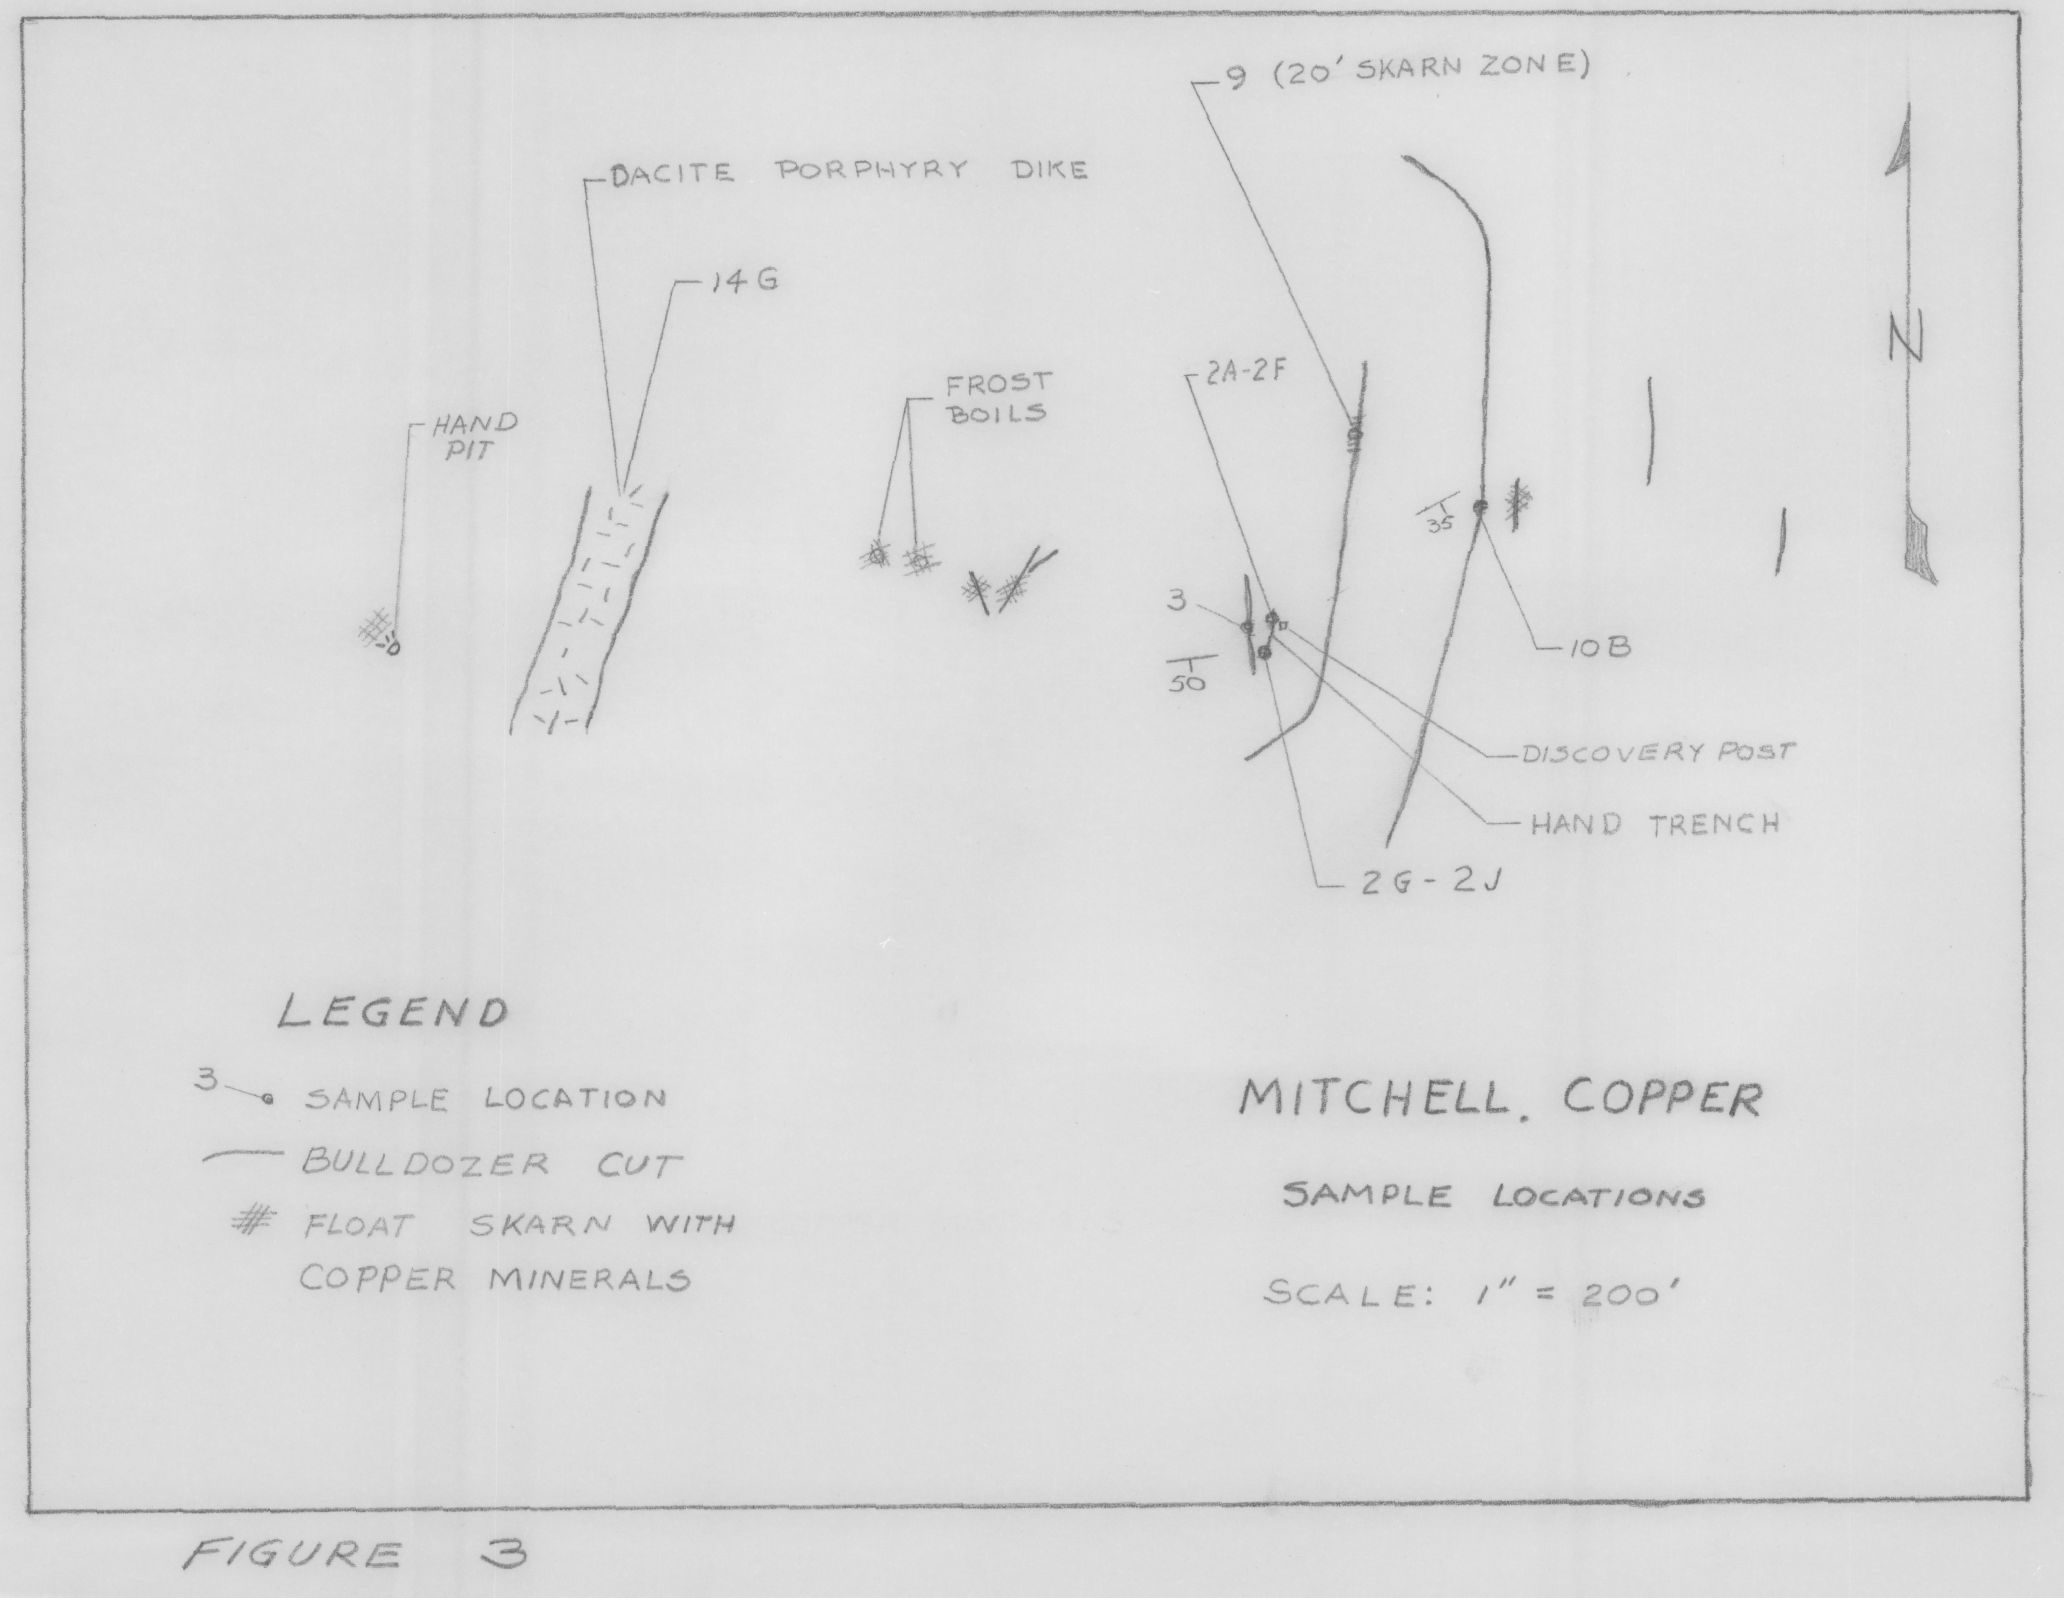 9 (20' SKARN ZONE)
DACITE PORPHYRY DIKE
14G
2A-2F
FROST
BOILS
HAND
PIT
N
35
3
50
10B
DISCOVERY POST
HAND TRENCH
2G-2J
LEGEND
3 SAMPLE LOCATION
BULLDOZER CUT
FLOAT SKARN WITH
COPPER MINERALS
MITCHELL. COPPER
SAMPLE LOCATIONS
SCALE: 1" = 200'
FIGURE 3